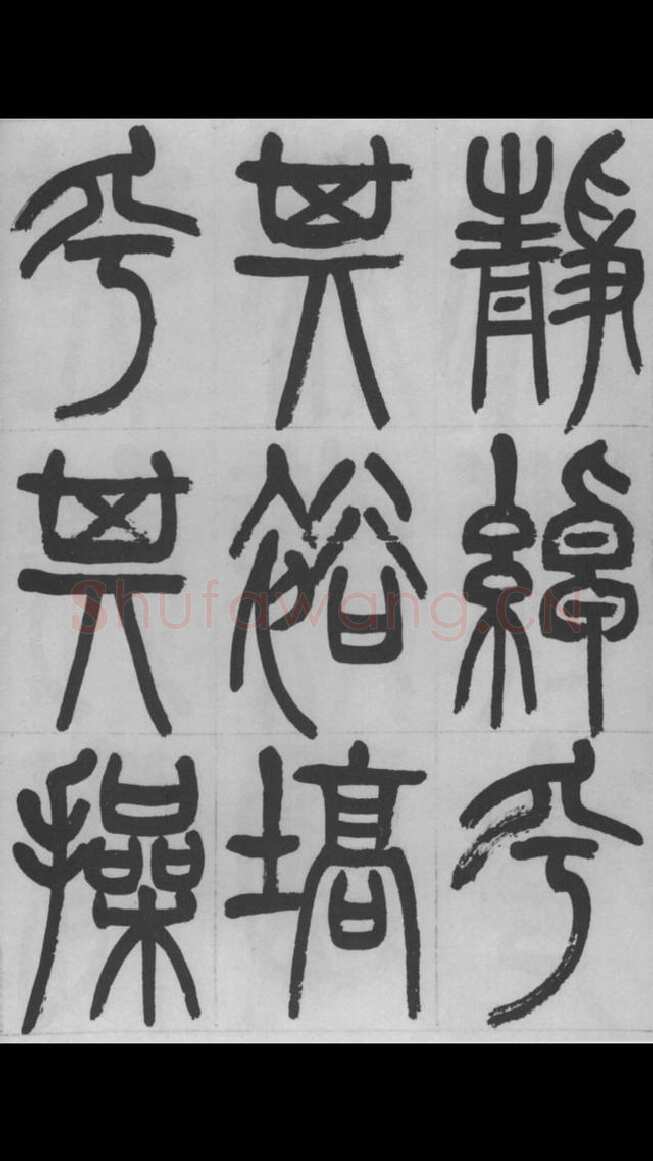 靜綽兮
其裕塙
兮其操
Shufawang.CN